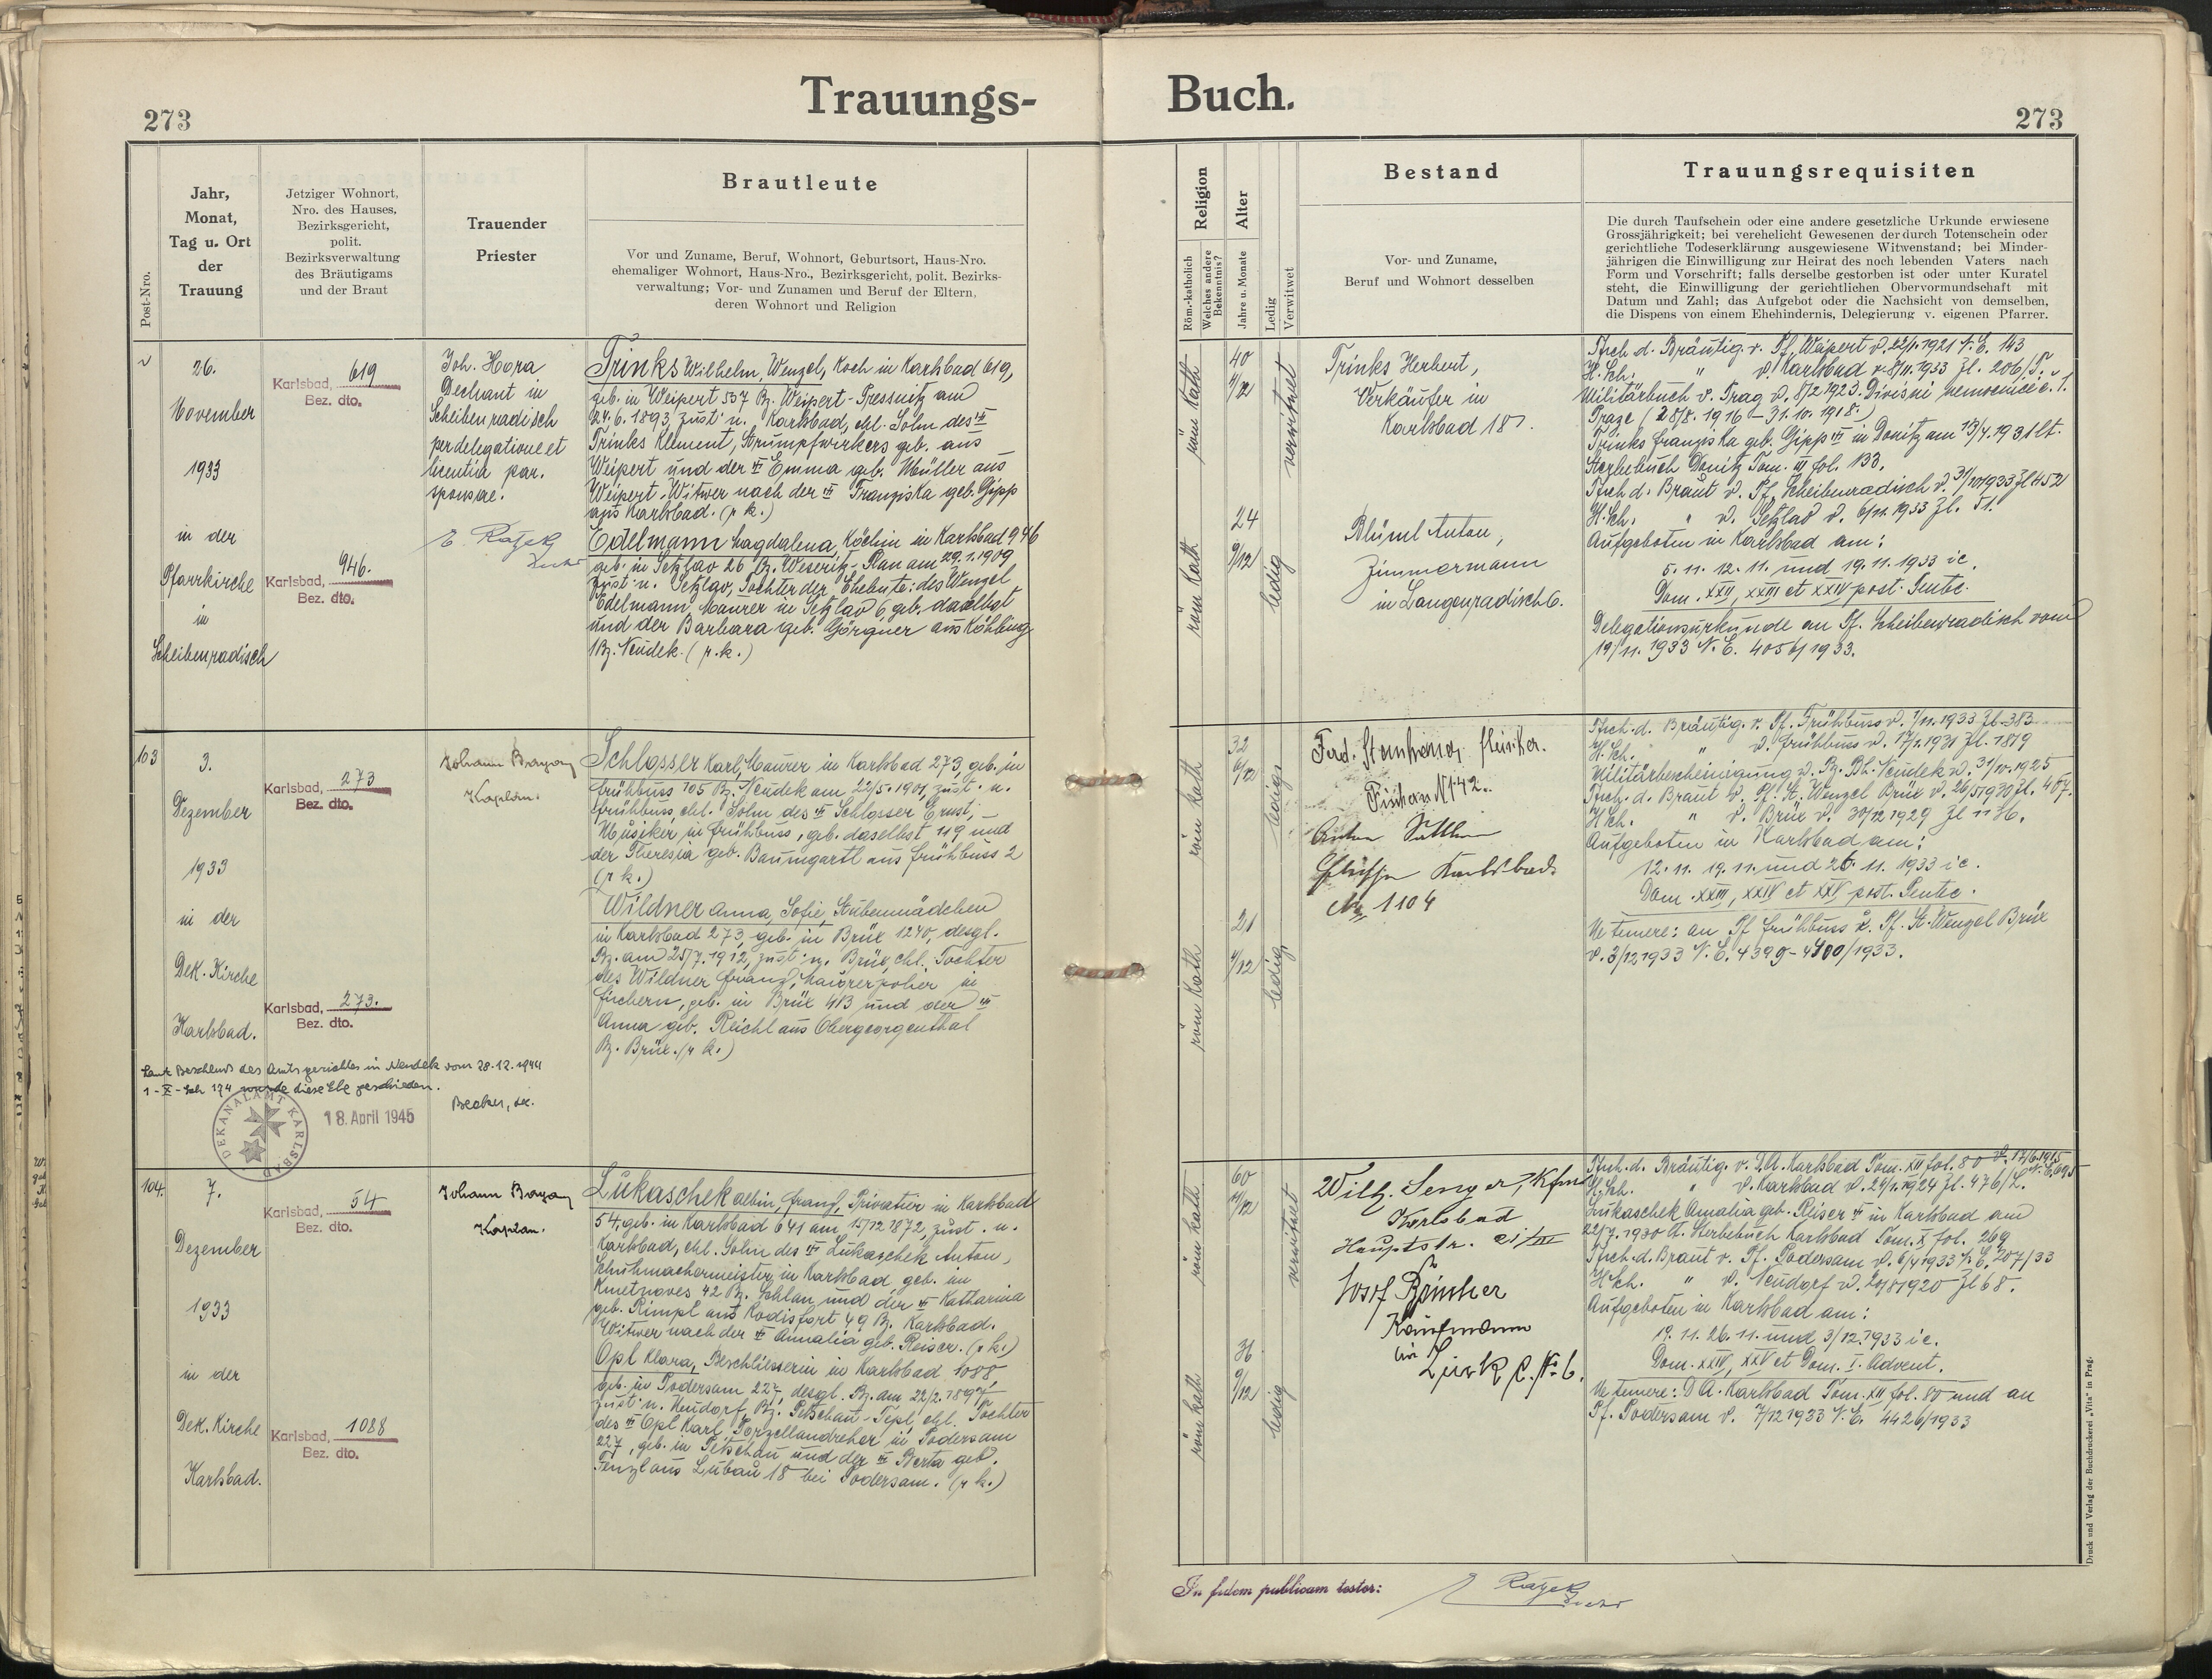 Trauungs-
Buch.
273
273
Post-Nro.
Jahr,
Monat,
Tag u. Ort
der
Trauung
Jetziger Wohnort,
Nro. des Hauses,
Bezirksgericht,
polit.
Bezirksverwaltung
des Bräutigams
und der Braut
Trauender
Priester
Brautleute
Vor und Zuname, Beruf, Wohnort, Geburtsort, Haus-Nro.
ehemaliger Wohnort, Haus-Nro., Bezirksgericht, polit. Bezirks-
verwaltung; Vor- und Zunamen und Beruf der Eltern,
deren Wohnort und Religion
Religion
Röm.-katholich
Welches andere
Bekenntnis?
Alter
Jahre u. Monate
Ledig
Verwitwet
Bestand
Vor- und Zuname,
Beruf und Wohnort desselben
Trauungsrequisiten
Die durch Taufschein oder eine andere gesetzliche Urkunde erwiesene
Grossjährigkeit; bei verehelicht Gewesenen der durch Totenschein oder
gerichtliche Todeserklärung ausgewiesene Witwenstand; bei Minder-
jährigen die Einwilligung zur Heirat des noch lebenden Vaters nach
Form und Vorschrift; falls derselbe gestorben ist oder unter Kuratel
steht, die Einwilligung der gerichtlichen Obervormundschaft mit
Datum und Zahl; das Aufgebot oder die Nachsicht von demselben,
die Dispens von einem Ehehindernis, Delegierung v. eigenen Pfarrer.
26.
November
1933
in der
Pfarrkirche
in
Scheibenradisch
Karlsbad, 619
Bez. dto.
Karlsbad, 946.
Bez. dto.
Joh. Hora
Dechant in
Scheibenradisch
per delegatione et
licentia par.
sponsae.
Trinks Wilhelm, Wenzel, Koch in Karlsbad 619,
geb. in Weipert 537 Bz. Weipert-Pressnitz am
24.6.1893, zust. n. Karlsbad, ehl. Sohn des
Trinks Klement, Strumpfwirkers geb. aus
Weipert und der Emma geb. Müller aus
Weipert. Witwer nach der Franziska geb. Gipp
aus Karlsbad. (r. k.)
Edelmann Magdalena, Köchin in Karlsbad 946
geb. in Setzlav 26 Bz. Weseritz-Plan am 29.1.1909
zust. n. Setzlav, Tochter der Eheleute: des Wenzel
Edelmann, Maurer in Setzlav 6, geb. daselbst
und der Barbara geb. Görgner aus Köhling
Bz. Neudek. (r. k.)
röm kath
40
verwitwet
röm kath
24
9/12
ledig
Trinks Herbert,
Verkäufer in
Karlsbad 187.
Blüml Anton,
Zimmermann
in Langenradisch 6.
Tsch. d. Bräutig. v. Pf. Weipert v. 22/1. 1921 N. E. 143
H. Sch. " v. Karlsbad v. 8/11. 1933 Zl. 206/T.
Militärbuch v. Prag v. 8/2 1923. Divisní nemocnice č. 1.
Praze (28/8. 1916 – 31.10.1918.)
Trinks Franziska geb. Gipp in Donitz am 13/4. 1931 lt.
Sterbebuch Donitz Tom. III fol. 133.
Tsch d. Braut v. Pf. Scheibenradisch v. 31/10 1933 Zl 452
H. Sch. " v. Setzlav v. 6/11. 1933 Zl. 51.
Aufgeboten in Karlsbad am:
5. 11. 12. 11. und 19. 11. 1933 ie.
Dom. XXII, XXIII et XXIV post. Pente.
Delegationsurkunde an Pf. Scheibenradisch vom
19/11. 1933 N. E. 4056/1933.
103
3.
Dezember
1933
in der
Dek. Kirche
Karlsbad.
Karlsbad, 273
Bez. dto.
Karlsbad, 273.
Bez. dto.
Johann
Kaplan.
Schlosser Karl, Maurer in Karlsbad 273, geb. in
Frühbuss 105 Bz. Neudek am 22/5. 1901, zust. n.
Frühbuss, ehl. Sohn des Schlosser Ernst, –
Musiker in Frühbuss, geb. daselbst 119 und
der Theresia geb. Baumgartl aus Frühbuss 2
(r. k.)
Wildner Anna, Sofie, Stubenmädchen
in Karlsbad 273, geb. in Brüx 1240, desgl.
Bz. am 25/7. 1912, zust. n. Brüx, ehl. Tochter
des Wildner Franz, Maurerpolier in
Fischern, geb. in Brüx 413 und der
Anna geb. Reichl aus Obergeorgenthal
Bz. Brüx. (r. k.)
Laut Beschluss des Amtsgerichtes in Neudek vom 28.12.1944
wurde diese Ehe geschieden.
DEKANALAMT KARLSBAD
18. April 1945
röm kath
32
6/12
ledig
röm kath
21
4/12
ledig
Fischern N 142.
Anton
Karlsbad
1104
Tsch. d. Bräutig. v. Pf. Frühbuss v. 7/11. 1933 Zl. 383
H. Sch. " v. Frühbuss v. 17/1. 1931 Zl. 1819
Militärbescheinigung v. Bz. Bh. Neudek v. 31/10. 1925
Tsch. d. Braut v. Pf. St. Wenzel Brüx v. 26/5 1930 Zl. 407.
H. Sch. " v. Brüx v. 30/12 1929 Zl 1136.
Aufgeboten in Karlsbad am:
12. 11. 19. 11. und 26. 11. 1933 ie.
Dom. XXIII, XXIV et XXV post. Pente.
Ne temere: an Pf Frühbuss u. Pf. St. Wenzel Brüx
v. 3/12 1933 N. E. 4399-4400/1933.
104.
7.
Dezember
1933
in der
Dek. Kirche
Karlsbad.
Karlsbad, 54
Bez. dto.
Karlsbad, 1088
Bez. dto.
Johann
Kaplan.
Lukaschek Albin, Franz, Privatier in Karlsbad
54, geb. in Karlsbad 641 am 15/12 1872, zust. n.
Karlsbad, ehl. Sohn des Lukaschek Anton,
Schuhmachermeister in Karlsbad geb. in
Kmetnoves 42 Bz. Schlan und der Katharina
geb. Rimpl aus Rodisfort 49 Bz. Karlsbad.
Witwer nach der Amalia geb. Reiser. (r. k.)
Opl Klara, Beschliesserin in Karlsbad 1088
geb. in Podersam 227, desgl. Bz. am 22/2. 1897,
zust. n. Neudorf, Bz. Petschau-Tepl, ehl. Tochter
des Opl Karl, Porzellandreher in Podersam
227, geb. in Petschau und der Berta geb.
Tenzl aus Lubau 18 bei Podersam. (r. k.)
röm kath
60
11/12
verwitwet
röm kath
36
9/12
ledig
Wilh. Senger, Kfm
Karlsbad
Hauptstr.
Josef
Kaufmann
in
Tsch. d. Bräutig. v. D. A. Karlsbad Tom. XII fol. 80
H. Sch. " v. Karlsbad v. 24/1. 1924 Zl. 476/L.
Lukaschek Amalia geb. Reiser in Karlsbad am
22/7. 1930 lt. Sterbebuch Karlsbad Tom. X fol. 269
Tsch. d. Braut v. Pf. Podersam v. 6/4 1933 N. E. 207/33
H. Sch. " v. Neudorf v. 20/8 1920 Zl 68.
Aufgeboten in Karlsbad am:
19. 11. 26. 11. und 3/12. 1933 ie.
Dom. XXIV, XXV et Dom. I. Advent.
Ne temere: D A. Karlsbad Tom. XII fol. 80 und an
Pf. Podersam v. 7/12 1933 N. E. 4426/1933
In fidem publicam testor:
Druck und Verlag der Buchdruckerei „Vita" in Prag.